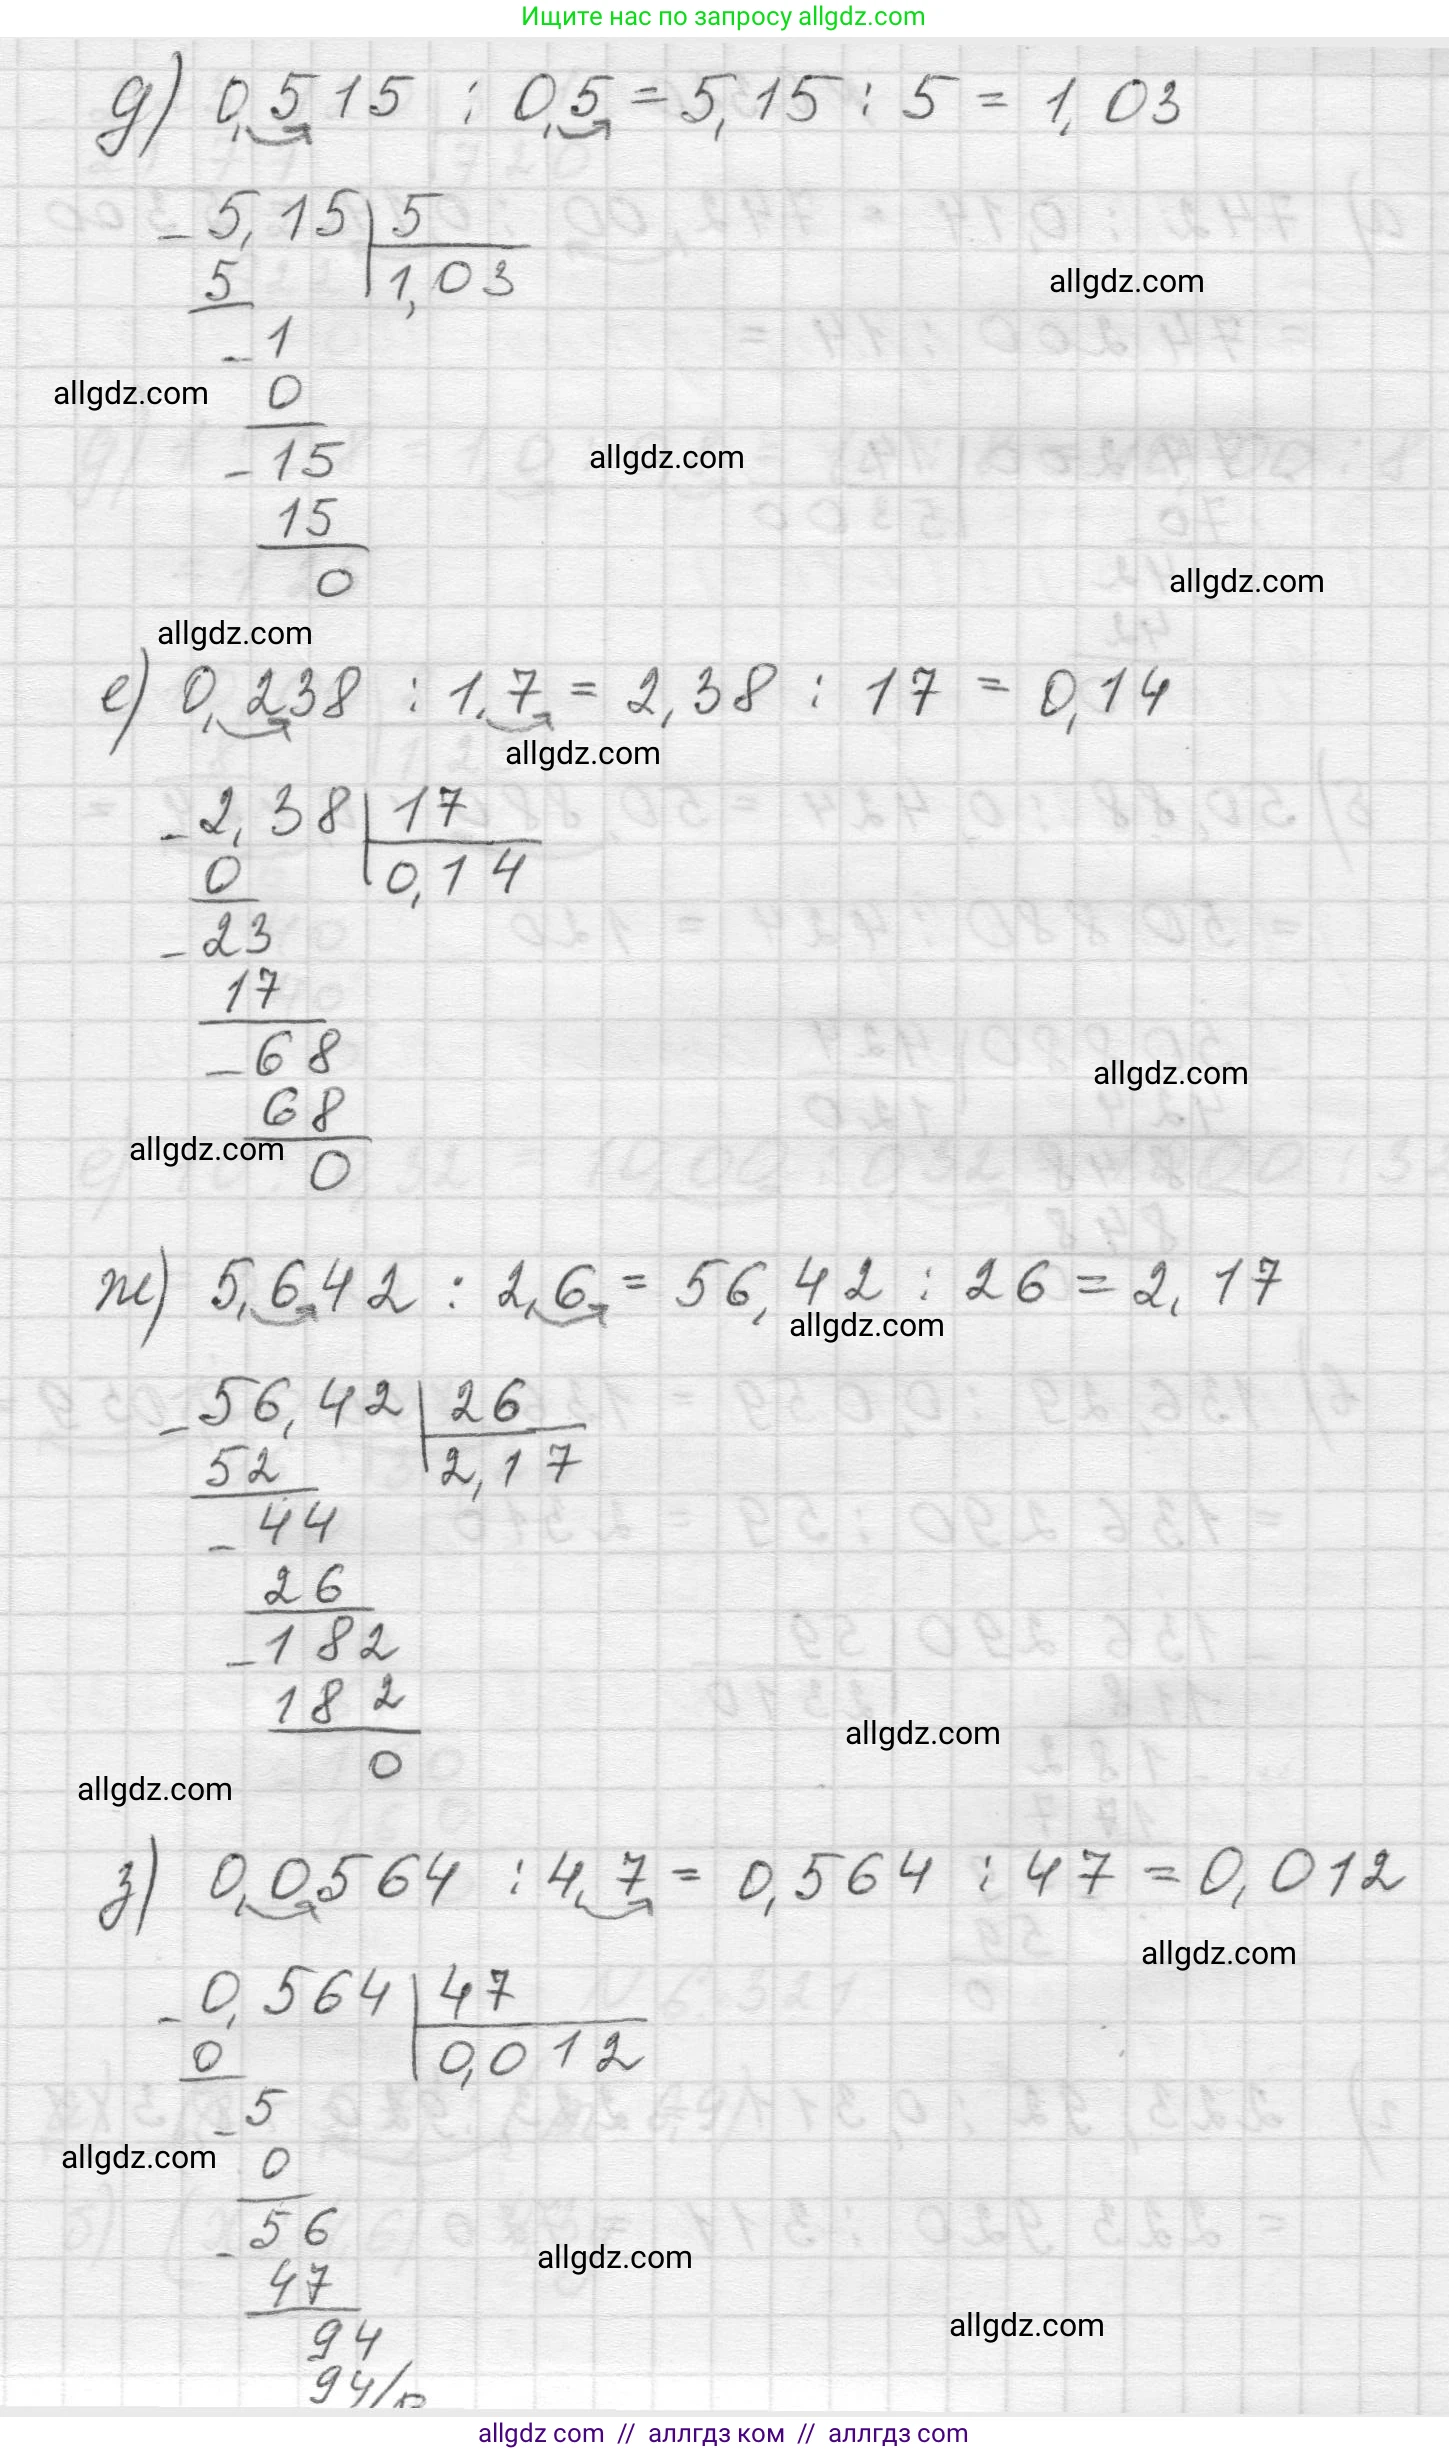 Ищите нас по запросу allgdz.com
д) 0,515 : 0,5 = 5,15 : 5 = 1,03
- 5,15 | 5
5 | 1,03
allgdz.com
- 1
allgdz.com
0
allgdz.com
- 15
15
allgdz.com
0
allgdz.com
е) 0,238 : 1,7 = 2,38 : 17 = 0,14
allgdz.com
- 2,38 | 17
0 | 0,14
- 23
17
- 68
allgdz.com
68
allgdz.com
0
ж) 5,642 : 2,6 = 56,42 : 26 = 2,17
allgdz.com
- 56,42 | 26
52 | 2,17
- 44
26
- 182
182
allgdz.com
0
allgdz.com
з) 0,0564 : 4,7 = 0,564 : 47 = 0,012
allgdz.com
- 0,564 | 47
0 | 0,012
- 5
allgdz.com
0
- 56
allgdz.com
47
allgdz.com
94
94
allgdz.com // аллгдз ком // аллгдз com